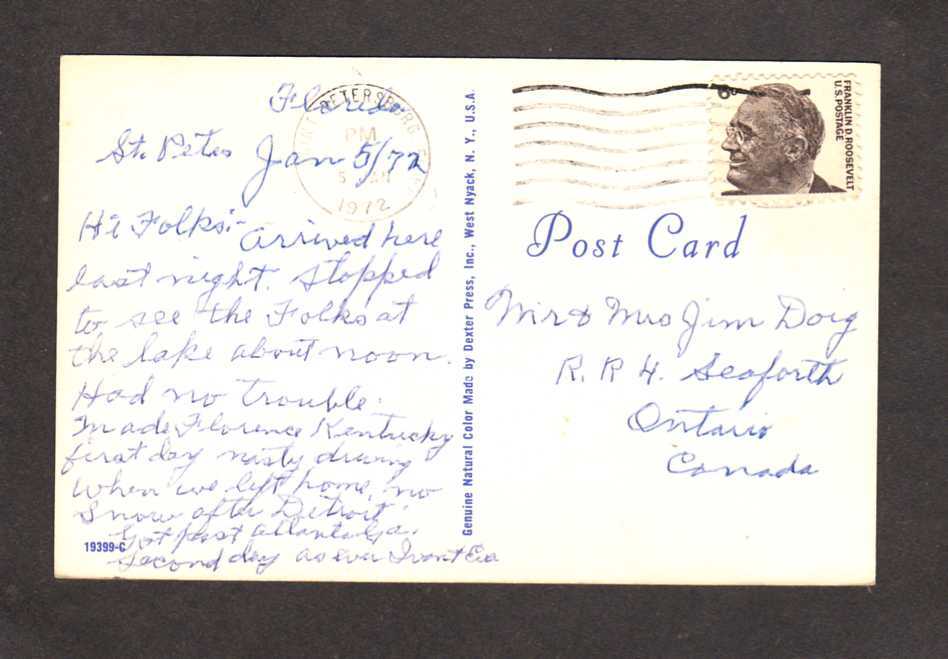 Florida
St. Petes Jan 5/72
Hi Folks:- Arrived here
last night. Stopped
to see the Folks at
the lake about noon.
Had no trouble.
Made Florence Kentucky
first day nasty driving
when we left home, no
Snow after Detroit
Got past Atlanta Ga.
Second day as ever
19399-C
PETERSBURG
PM
5 JAN
1972
Genuine Natural Color Made by Dexter Press, Inc., West Nyack, N. Y., U.S.A.
6¢
FRANKLIN D. ROOSEVELT
U.S. POSTAGE
Post Card
Mr & Mrs Jim Doig
R. R 4. Seaforth
Ontario
Canada